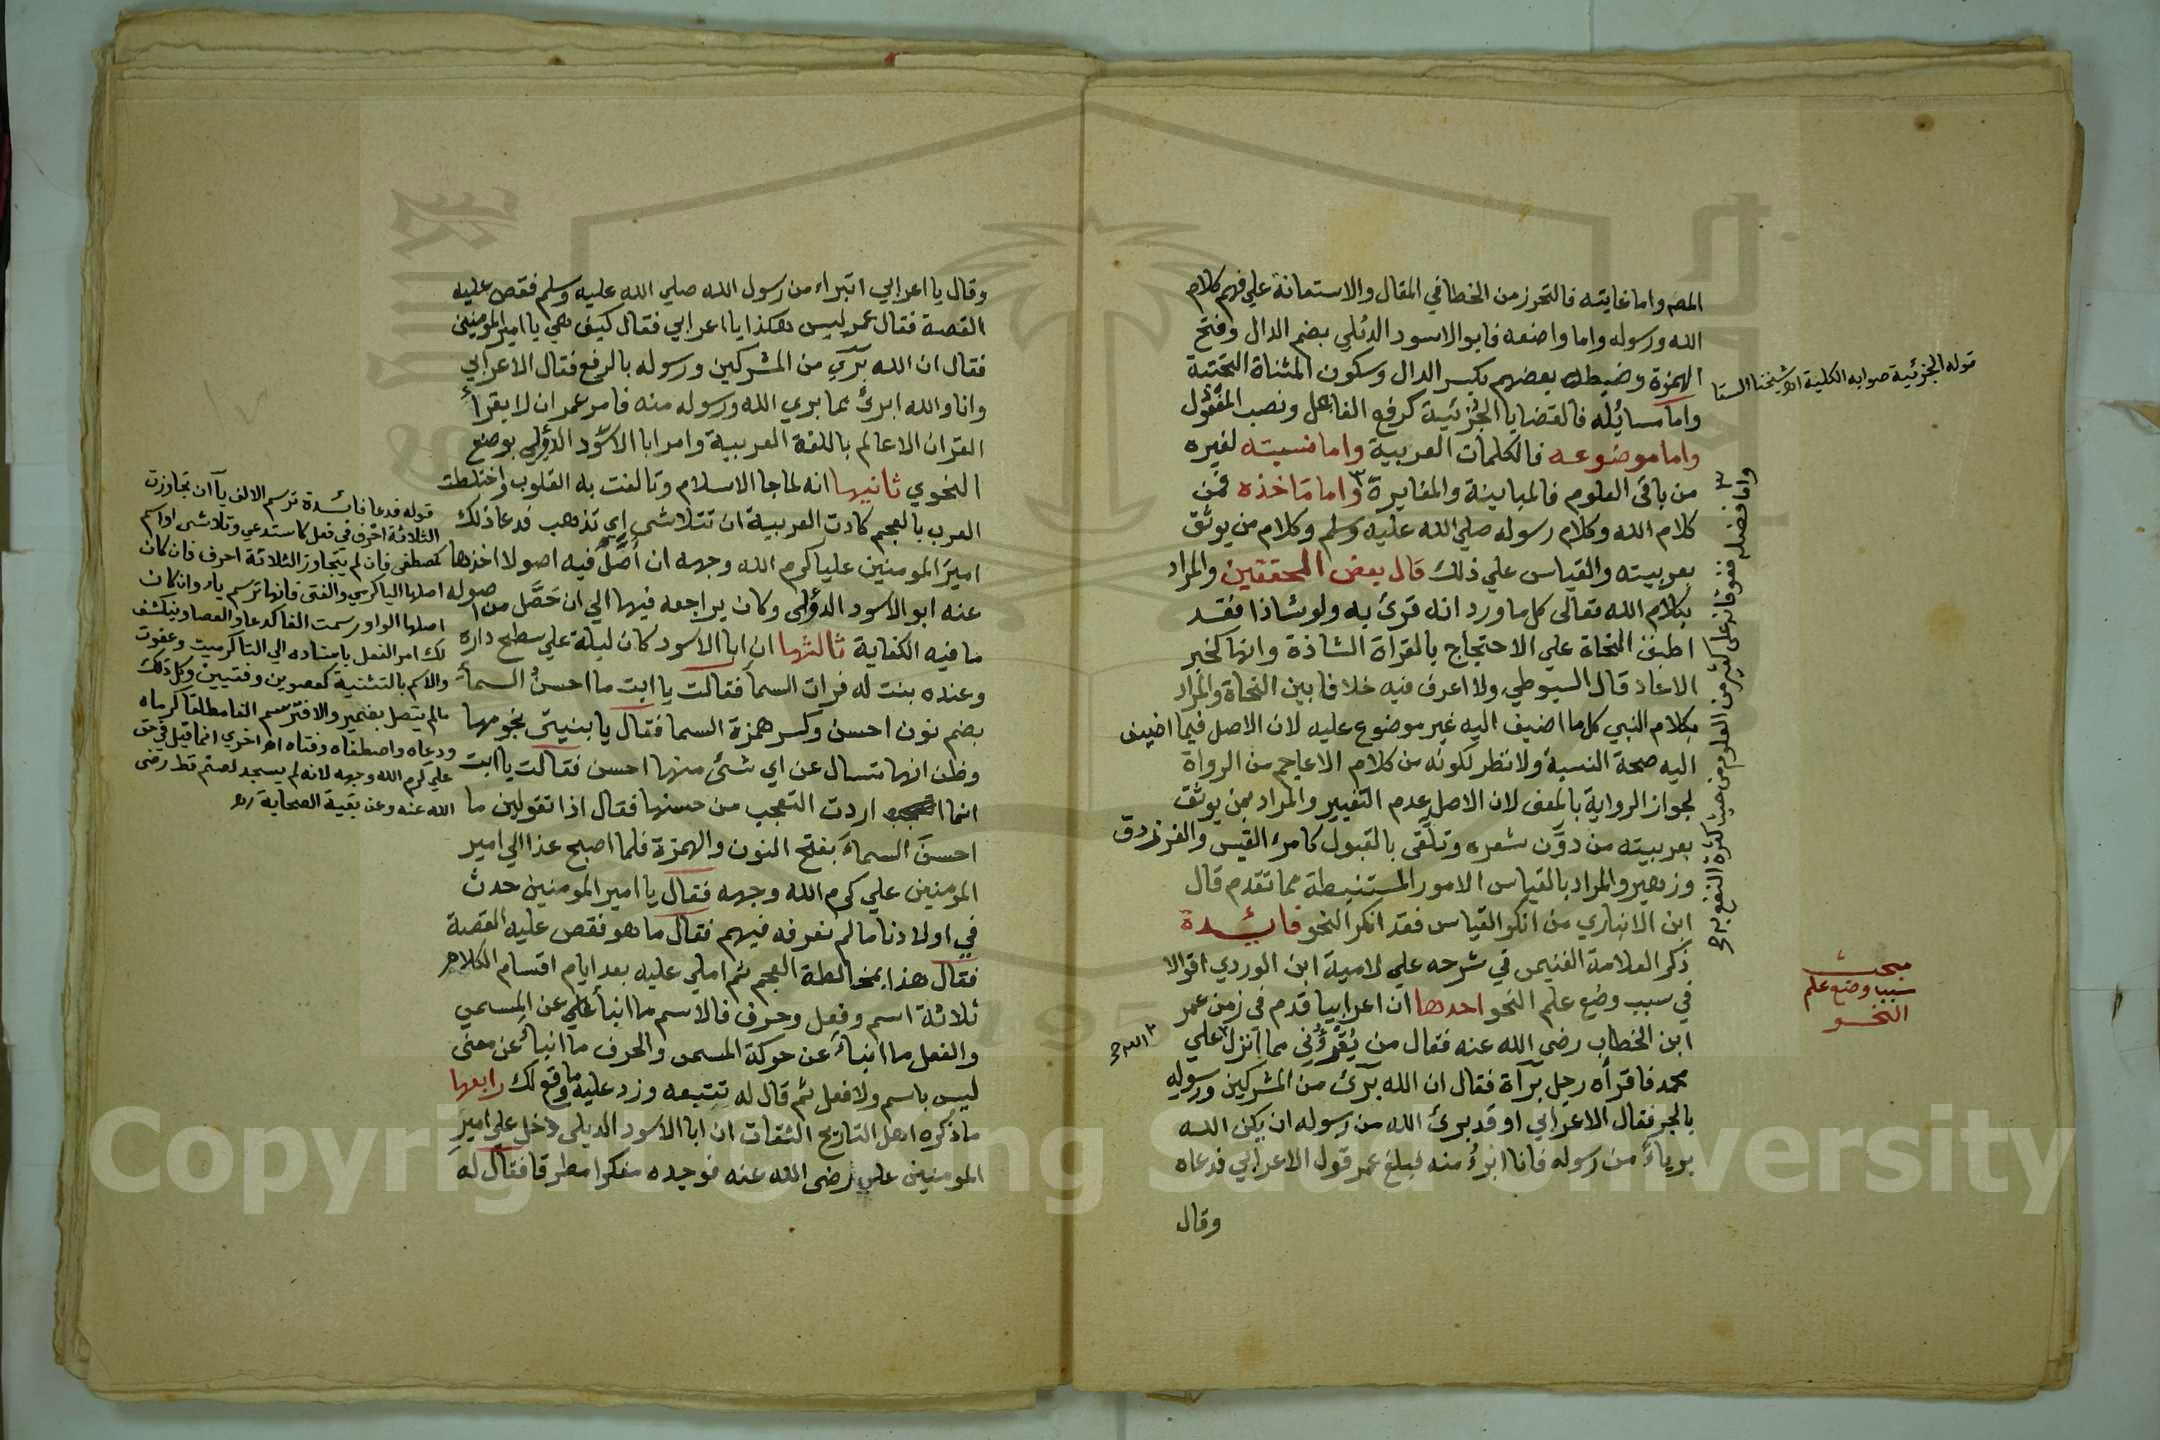 المص واما غايته فالتحرز من الخطا في المقال والاستعانة علي فهم كلام
الله ورسوله واما واضعه فابو الاسود الدئلي بضم الدال وفتح
الهمزة وضبطه بعضهم بكسر الدال وسكون المثناة التحتية
واما مسائله فالقضايا الجزئية كرفع الفاعل ونصب المفعول
واما موضوعه فالكلمات العربية واما نسبته لغيره
من باقي العلوم فالمباينة والمغايرة ٣ واما ماخذه فمن
كلام الله وكلام رسوله صلي الله عليه وسلم وكلام من يوثق
بعربيته والقياس علي ذلك قال بعض المحققين والمراد
بكلام الله تعالى كل ما ورد انه قرئ به ولو شاذا فقد
اطبق النحاة علي الاحتجاج بالقراة الشاذة وانها كخبر
الاحاد قال السيوطي ولا اعرف فيه خلافا بين النحاة والمراد
بكلام النبي كل ما اضيف اليه غير موضوع عليه لان الاصل فيما اضيف
اليه صحة النسبة ولا نظر لكونه من كلام الاعاجم من الرواة
لجواز الرواية بالمعنى لان الاصل عدم التغيير والمراد بمن يوثق
بعربيته من دون شعره وتلقى بالقبول كامرء القيس والفرزدق
وزهير والمراد بالقياس الامور المستنبطة مما تقدم قال
ابن الانباري من انكر القياس فقد انكر النحو فايدة
ذكر العلامة الغنيمي في شرحه علي لامية ابن الوردي اقوالا
في سبب وضع علم النحو احدها ان اعرابيا قدم في زمن عمر
ابن الخطاب رضي الله عنه فقال من يقرؤني مما انزل علي
محمد فاقراه رجل برآة فقال ان الله برئ من المشركين ورسوله
بالجر فقال الاعرابي او قد برئ الله من رسوله ان يكن الله
بريأ من رسوله فانا ابرأ منه فبلغ عمر قول الاعرابي فدعاه
وقال
قوله الجزئية صوابه الكلية اه شيخنا السقا
٣ واما فضله ففوقانه على كثير من العلوم من حيث كثرة النفع به صح
مبحث
سبب وضع علم
النحو
٢ الله صح
وقال يا اعرابي اتبراء من رسول الله صلي الله عليه وسلم فقص عليه
القصة فقال عمر ليس هكذا يا اعرابي فقال كيف هي يا امير المومنين
فقال ان الله برئ من المشركين ورسوله بالرفع فقال الاعرابي
وانا والله ابرئ مما بري الله ورسوله منه فامر عمر ان لا يقرأ
القران الا عالم باللغة العربية وامر ابا الاسود الدؤلي بوضع
النحوي ثانيها انه لما جا الاسلام وتالفت به القلوب واختلطت
العرب بالعجم كادت العربية ان تتلاشي اي تذهب فدعا ذلك
امير المومنين عليا كرم الله وجهه ان اصل فيه اصولا اخذها
عنه ابو الاسود الدؤلي وكان يراجعه فيها الي ان حصل من اصوله
ما فيه الكفاية ثالثها ان ابا الاسود كان ليلة علي سطح داره
وعنده بنت له فرات السما فقالت يا ابت ما احسن السمآ
بضم نون احسن وكسر همزة السما فقال يا بنيتي نجومها
وظن انها تسال عن اي شئ منها احسن فقالت يا ابت
انما اردت التعجب من حسنها فقال اذا تقولين ما
احسن السماء بفتح النون والهمزة فلما اصبح غدا الي امير
المومنين علي كرم الله وجهه فقال يا امير المومنين حدث
في اولادنا ما لم نعرفه فيهم فقال ما هو فقص عليه القصة
فقال هذا بمخالطة العجم ثم املي عليه بعد ايام اقسام الكلام
ثلاثة اسم وفعل وحرف فالاسم ما انبأ عن المسمي
والفعل ما انبأ عن حركة المسمى والحرف ما انبأ عن معنى
ليس باسم ولا فعل ثم قال له تتبعه وزد عليه ما وقع لك رابعها
ما ذكره اهل التاريخ الثقات ان ابا الاسود الديلي دخل علي امير
المومنين علي رضي الله عنه فوجده مفكرا مطرقا فقال له
قوله فدعا فائدة ترسم الالف يآ ان تجاوزت
الثلاثة احرف في فعل كاستدعي وتلاشى او اسم
كمصطفى فان لم يتجاوز الثلاثة احرف فان كان
اصلها اليا كرمي والفتى فانها ترسم ياء وان كان
اصلها الواو رسمت الفا كدعا والعصا وينكشف
لك امر الفعل باسناده الي التا كرميت وعفوت
والاسم بالتثنية كعصوين وفتيين وكل ذلك
ما لم يتصل بضمير والا فترسم الفا مطلقا كرماه
ودعاه واصطفاه وفتاه اه اخري انما قيل في حق
علي كرم الله وجهه لانه لم يسجد لصنم قط رضى
الله عنه وعن بقية الصحابة اه
Copyright © King Saud University